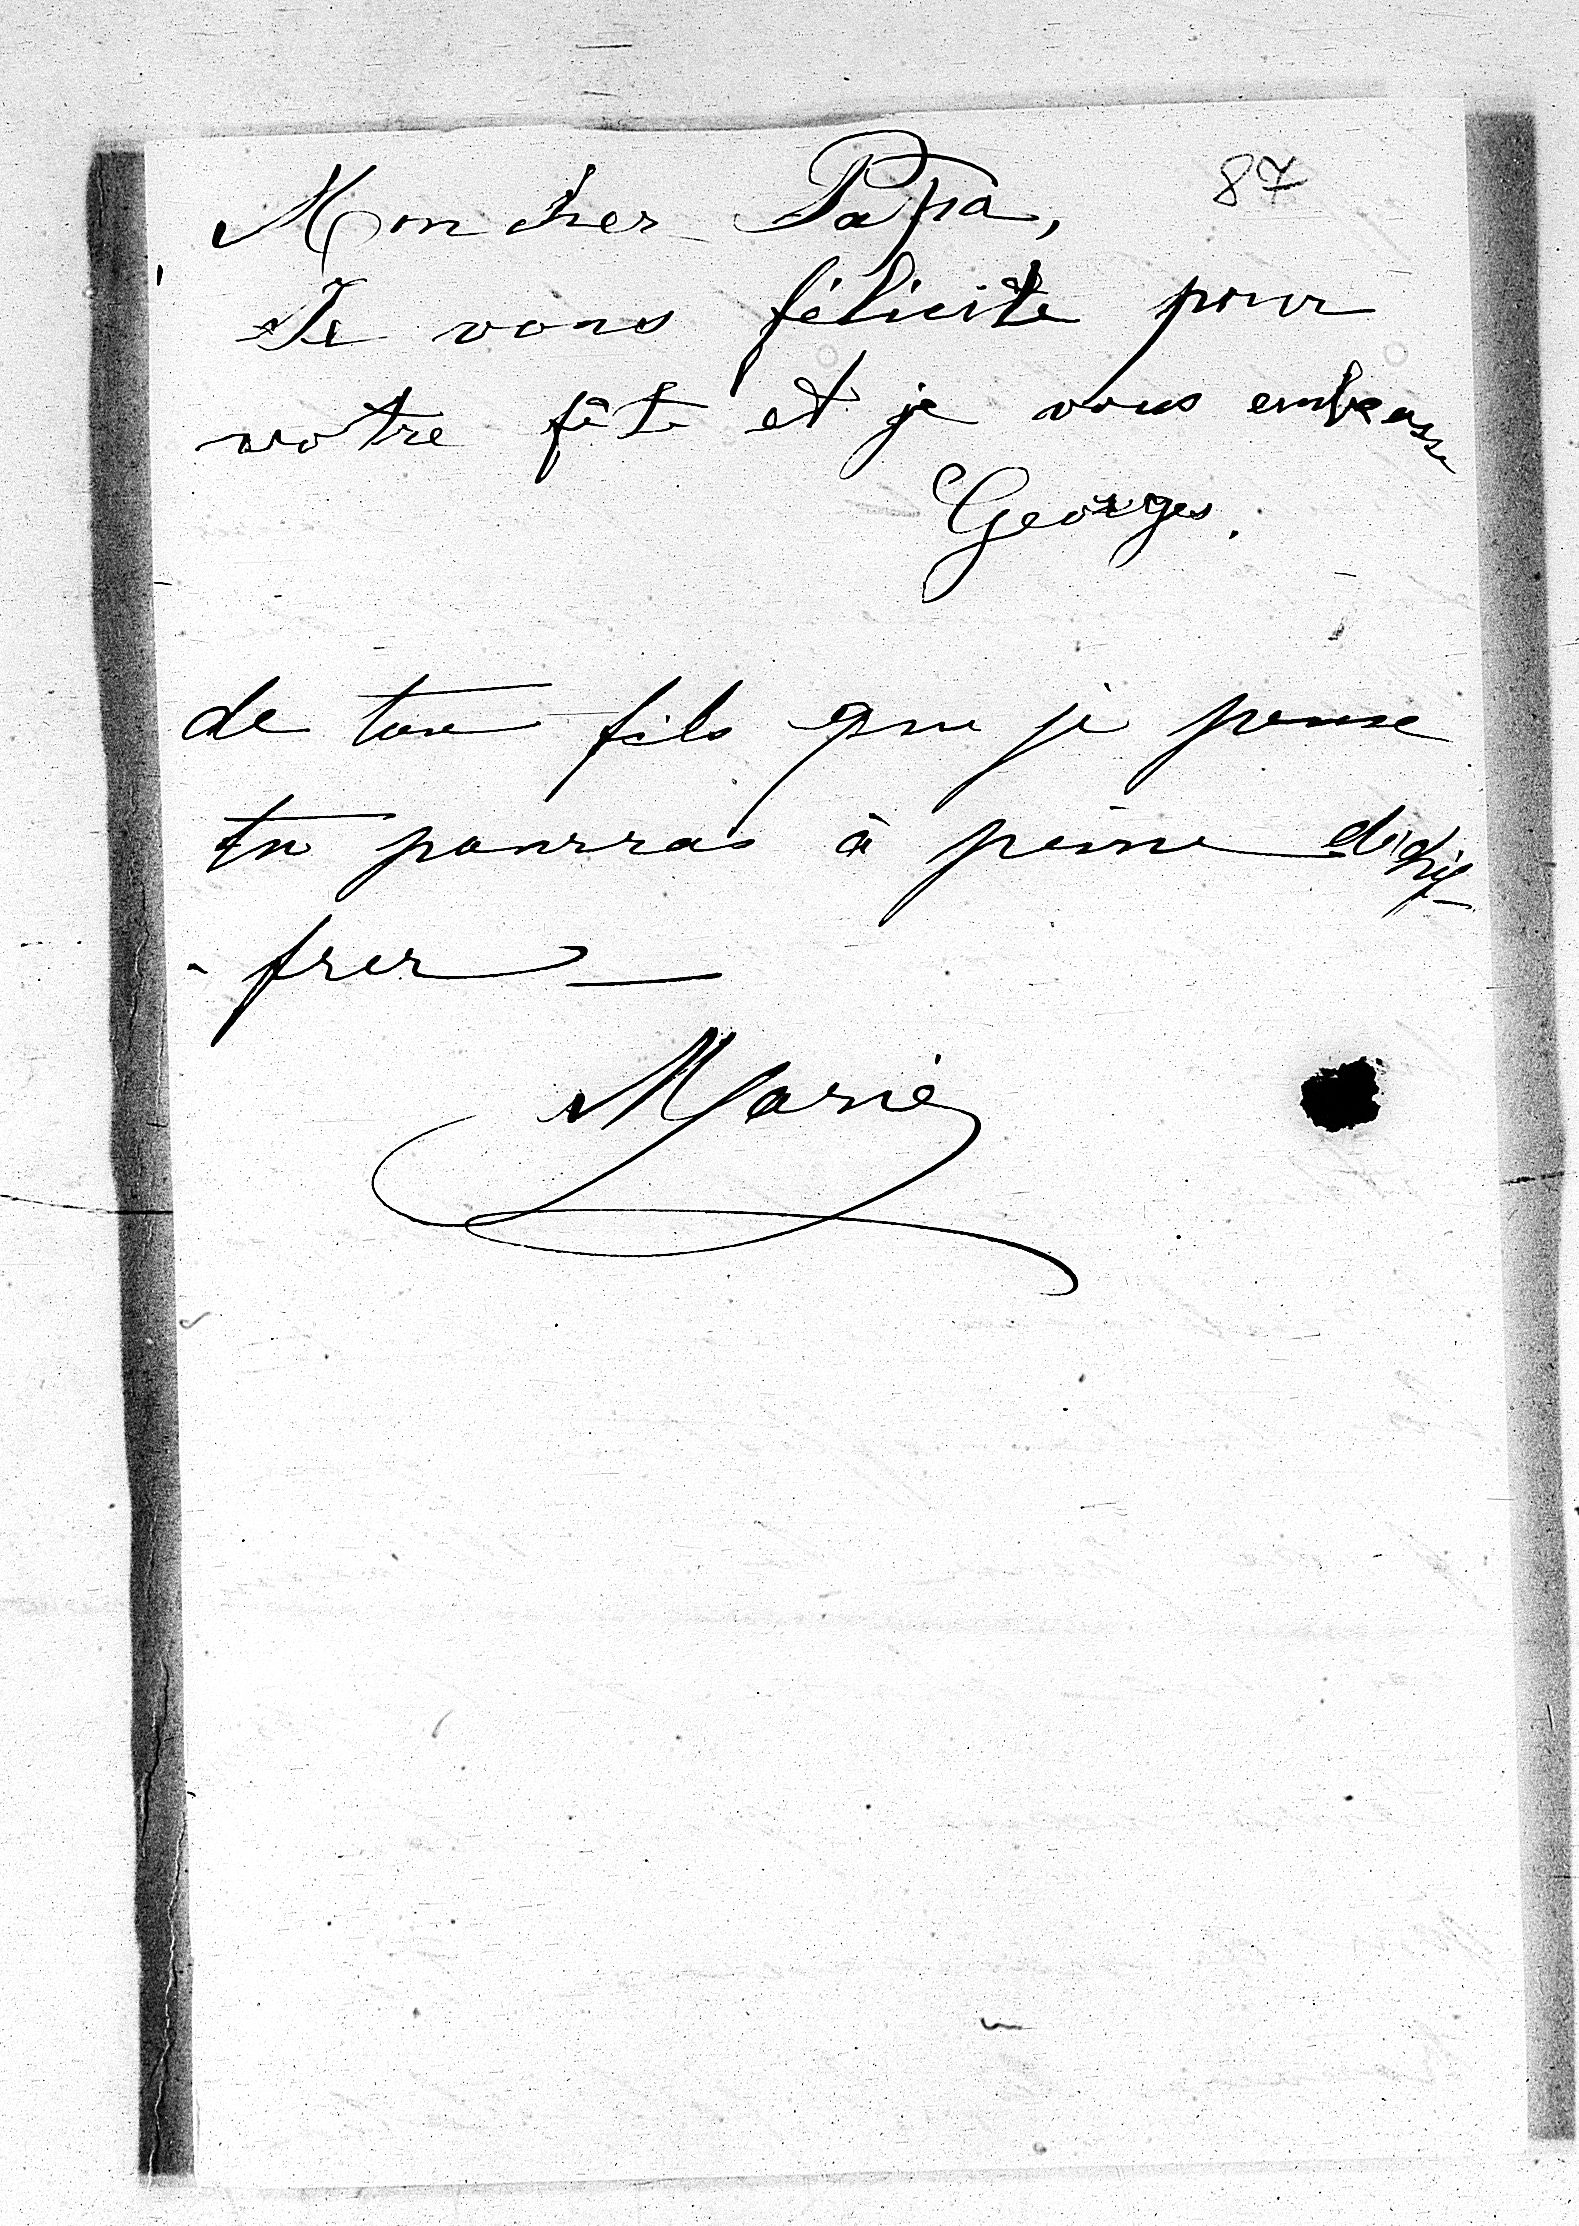 87
Mon cher Papa,
Je vous félicite pour
votre fête et je vous embrasse
Georges.
de ton fils que je pense
tu pourras à peine déchif-
frer —
Marie